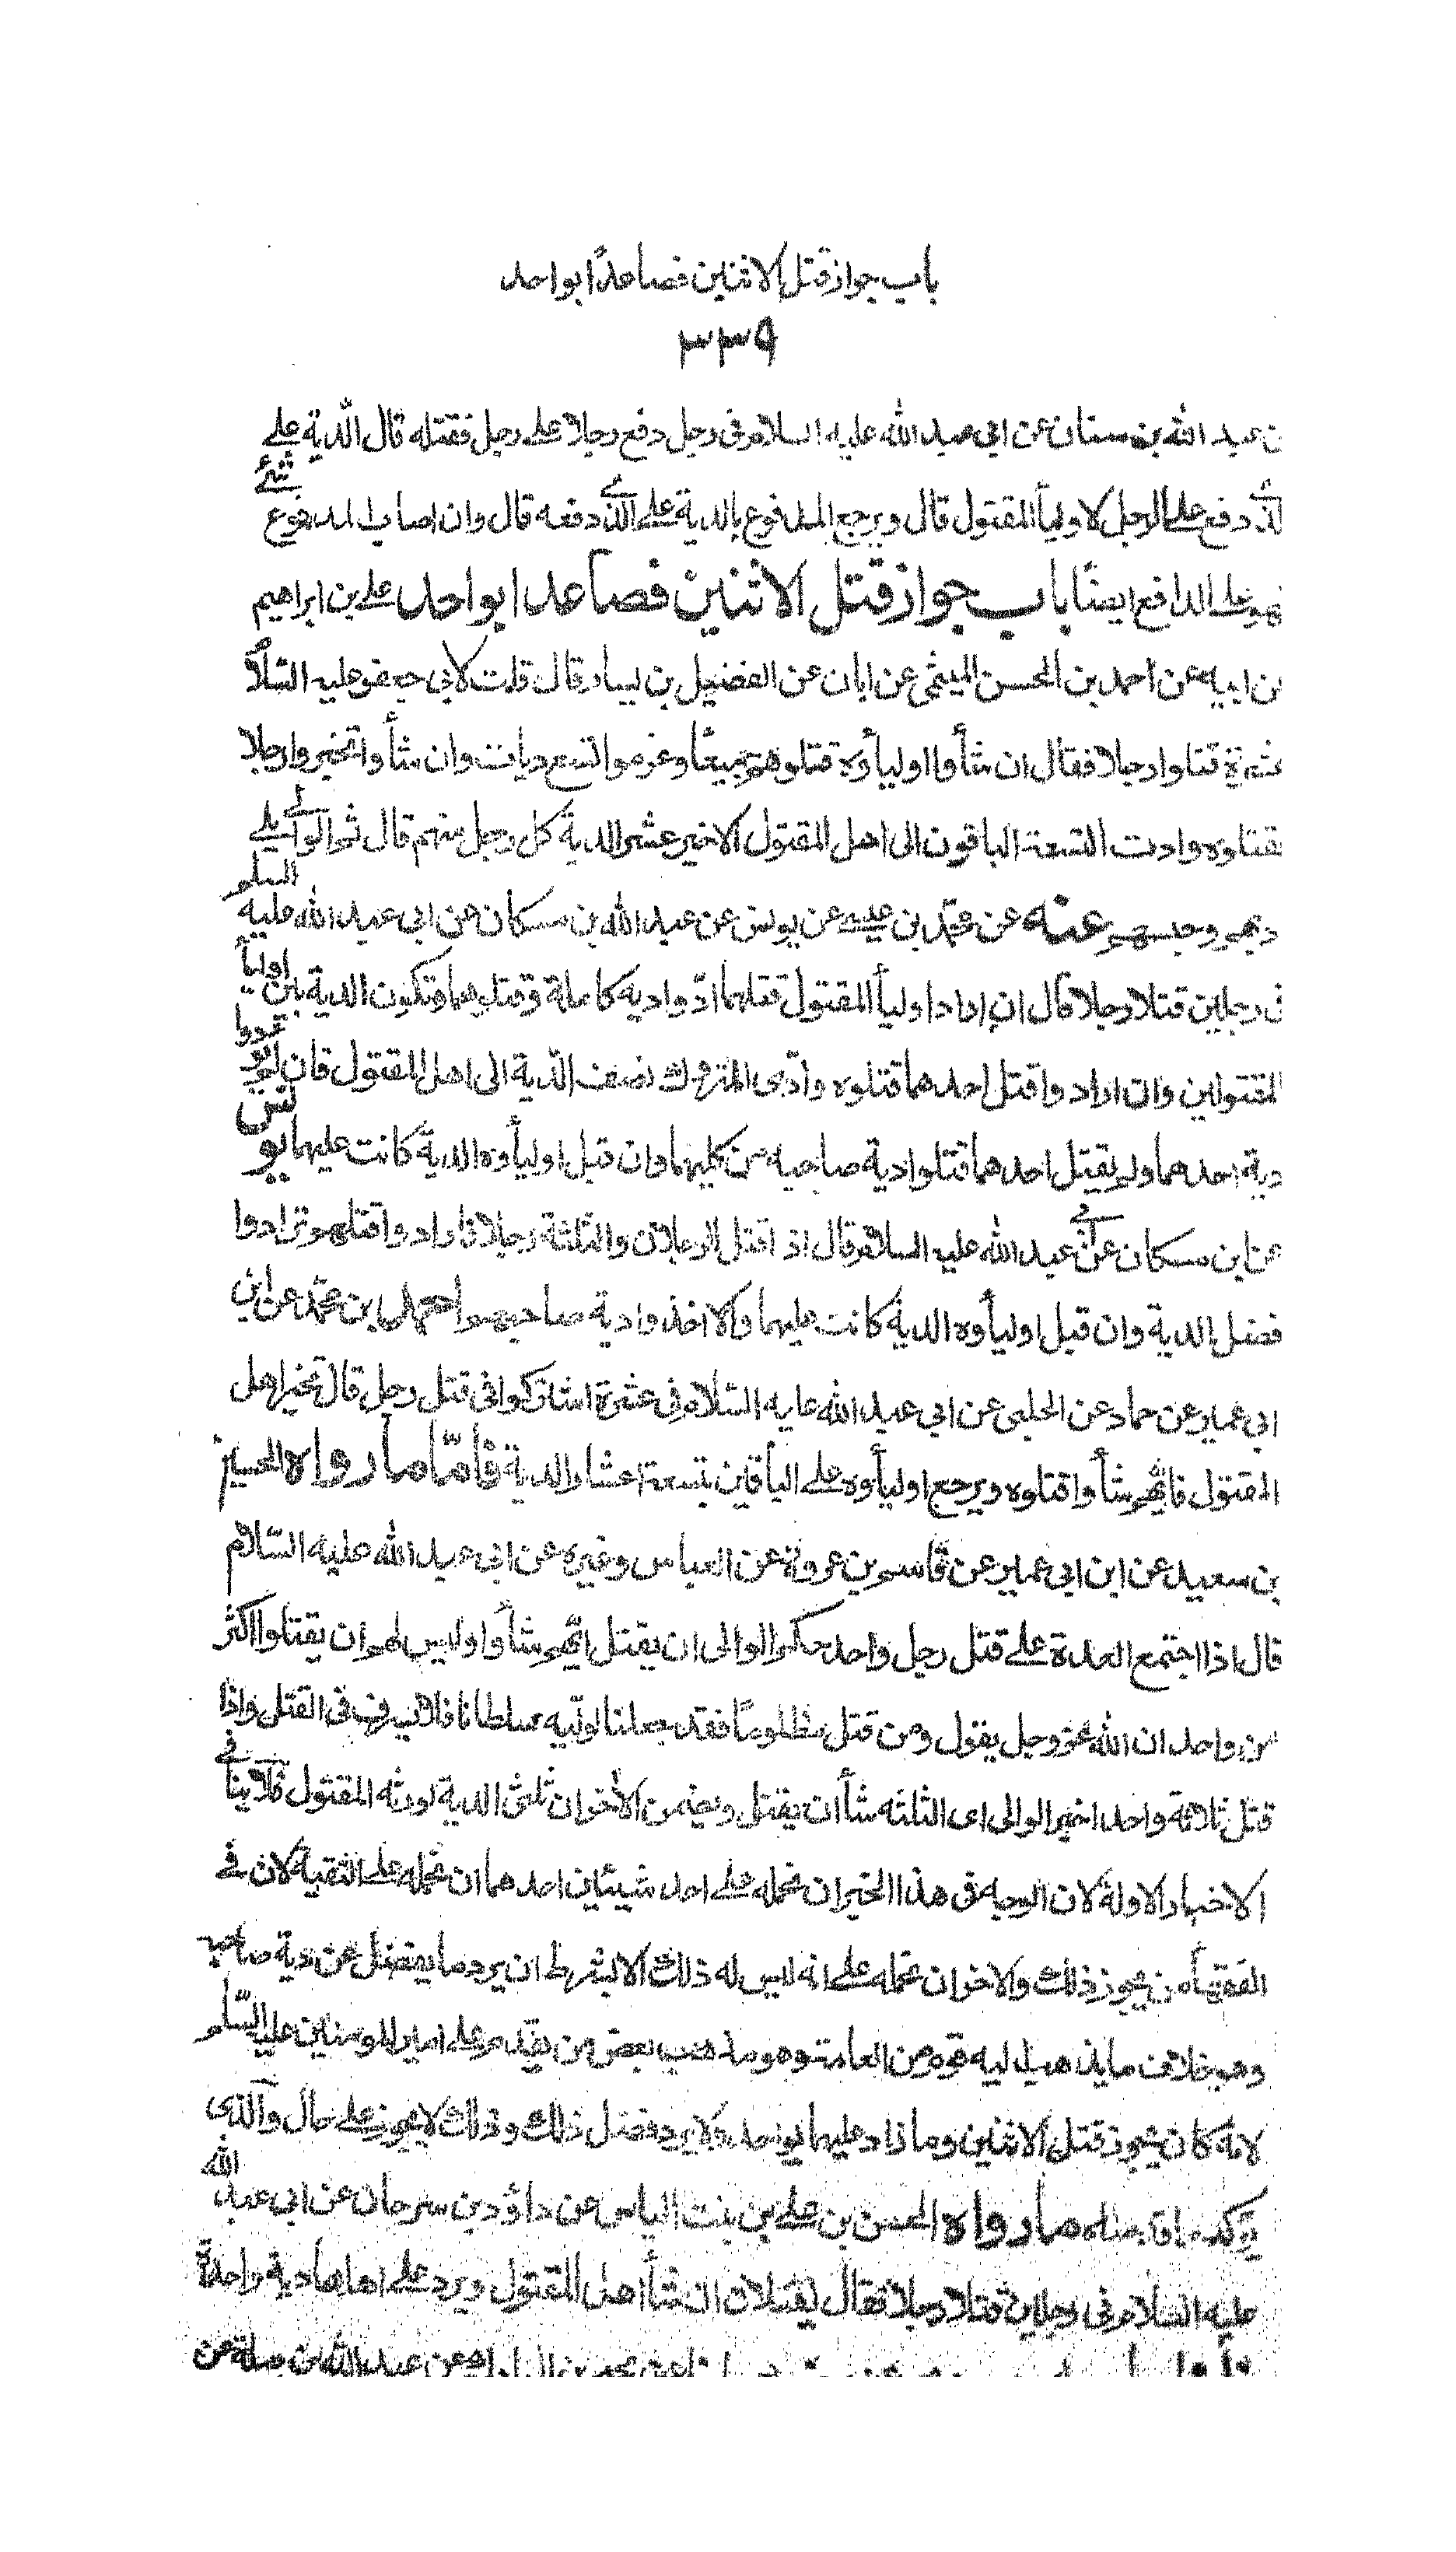 باب جواز قتل الاثنين فصاعدًا بواحد
٣٣٩
عبد الله بن سنان عن ابى عبد الله عليه السلام فى رجل دفع رجلا على رجل فقتله قال الدية على
الذى دفع على الرجل لاوليأ المقتول قال ويرجع المدفوع بالدية على الذى دفعه قال وان اصاب المدفوع شئ
فهو على الدافع ايضًا باب جواز قتل الاثنين فصاعدا بواحد على بن ابراهيم
عن ابيه عن احمد بن الحسن الميثمى عن ابان عن الفضيل بن يسار قال قلت لابى جعفر عليه السّلام
عشرة قتلوا رجلا فقال ان شأوا اوليأوه قتلوهم جميعًا وغرموا تسع ديات وان شأوا تخيروا رجلا
فقتلوه وادت التسعة الباقون الى اهل المقتول الاخير عشر الدية كل رجل منهم قال ثم الوالى يلى
دبهم وحبسهم عنه عن محمّد بن عيسى عن يونس عن عبد الله بن مسكان عن ابى عبد الله عليه السلم
فى رجلين قتلا رجلا قال ان اراد اوليأ المقتول قتلهما ادّوا دية كاملة وقتلوهما وتكون الدية بين اوليأ
المقتولين وان ارادوا قتل احدهما قتلوه وادّى المتروك نصف الدّية الى اهل المقتول فان لم يؤدوا
دية احدهما ولم يقتل احدهما قتلوا دية صاحبه من كليهما وان قبل اوليأوه الدية كانت عليهما يونس
عن ابن مسكان عن ابى عبد الله عليه السلام قال اذا قتل الرجلان والثلثة رجلا فارادوا قتلهم ترادوا
فضل الدية وان قبل اوليأوه الدية كانت عليهما والا اخذوا دية صاحبهم احمد بن محمّد عن ابن
ابى عمير عن حماد عن الحلبى عن ابى عبد الله عليه السّلام فى عشرة اشتركوا فى قتل رجل قال تخير اهل
المقتول فايّهم شأوا قتلوه ويرجع اوليأوه على الباقين بتسعة اعشار الدية فأمّا ما رواه الحسين
بن سعيد عن ابن ابى عمير عن قاسم بن عروة عن العباس وغيره عن ابى عبد الله عليه السّلام
قال اذا اجتمع العدة على قتل رجل واحد حكم الوالى ان يقتل ايّهم شأوا وليس لهم ان يقتلوا اكثر
من واحد ان الله عز وجل يقول ومن قتل مظلومًا فقد جعلنا لوليّه سلطانا فلا يسرف فى القتل واذا
قتل ثلاثة واحدا خير الوالى اى الثلثه شأ ان يقتل ويضمن الأخران ثلثى الدية لورثه المقتول فلا ينافى
الاخبار الاولة لان الوجه فى هذا الخبر ان نحمله على احد شيئان احدهما ان نحمله على التقية لان فى
الفقهأ من يجوز ذلك والاخر ان نحمله على انه ليس له ذلك الا بشرط ان يرد ما يفضل عن دية صاحبه
وهو خلاف ما يذهب اليه قوم من العامة وهو مذهب بعض من تقدم على امير المومنين عليه السّلم
لانه كان يجوز قتل الاثنين وما زاد عليهما بواحد ولا يرد فضل ذلك وذلك لا يجوز على حال والّذى
يؤكد ما قدمناه ما رواه الحسن بن على بن بنت الياس عن داؤد بن سرحان عن ابى عبد الله
عليه السلام فى رجلين قتلا رجلا فقال يقتلان ان شأ اهل المقتول ويرد على اهلهما دية واحدة
عن عبد الله بن جبلة عن